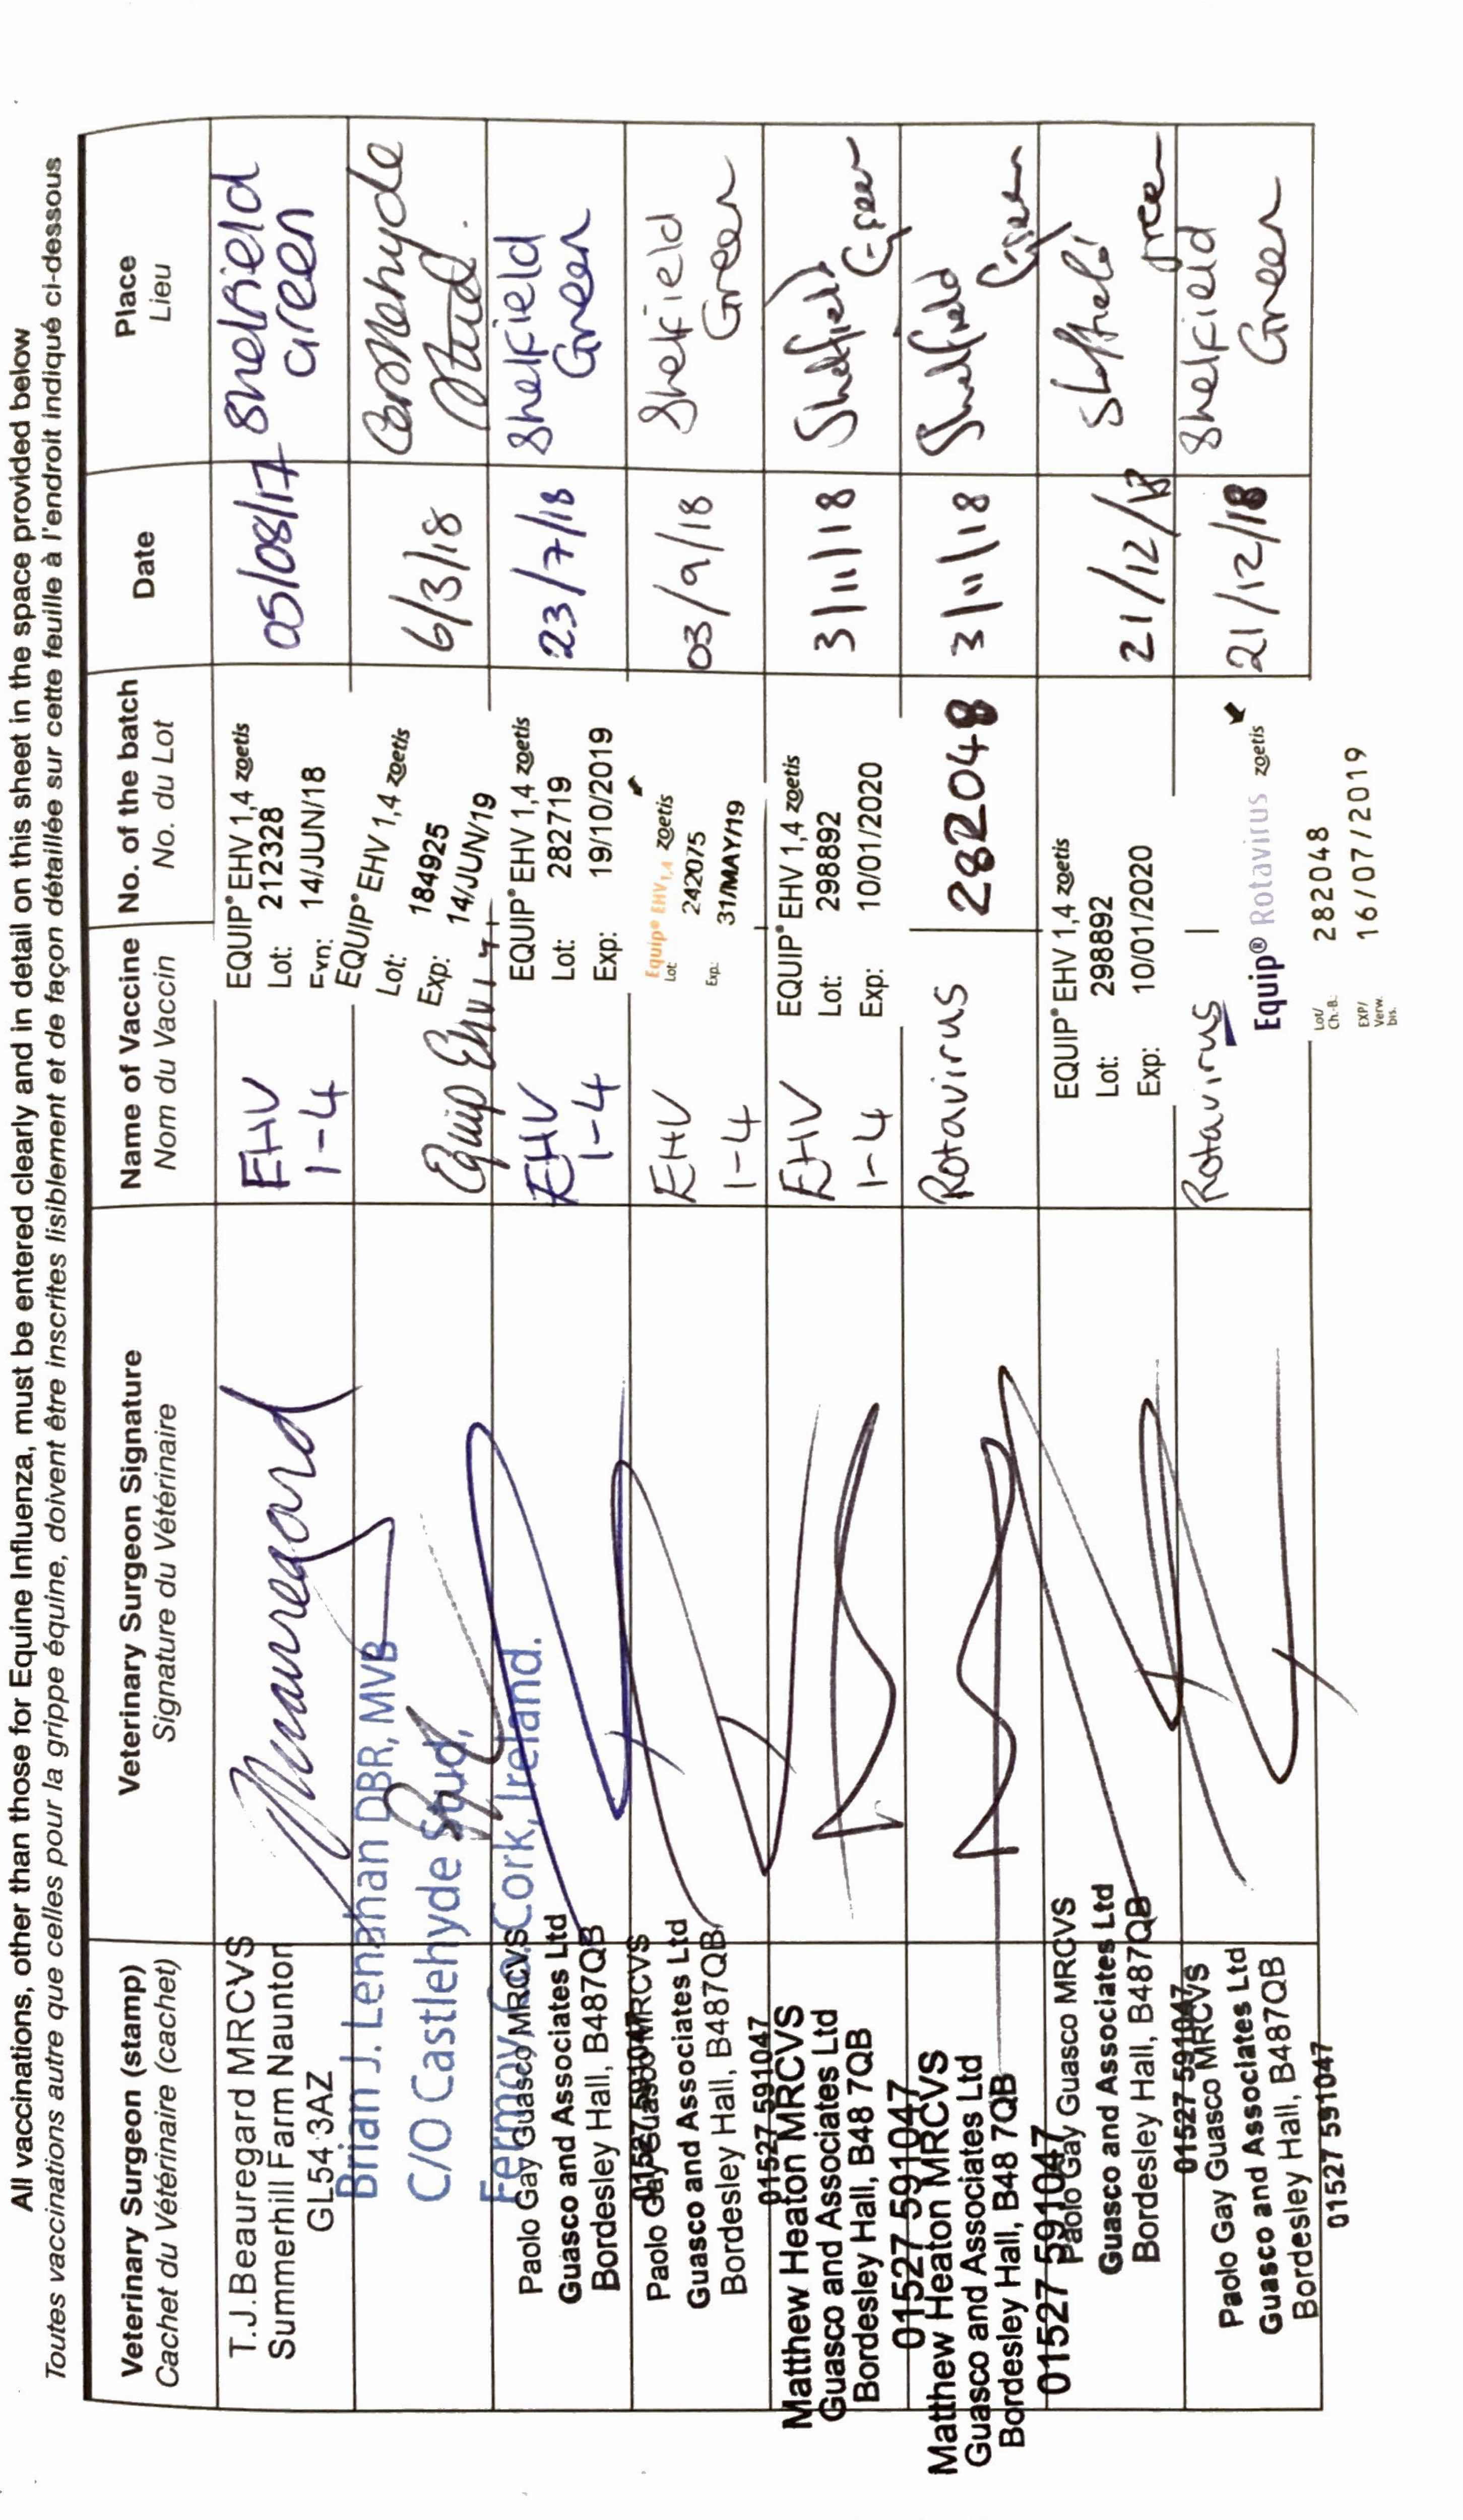 All vaccinations, other than those for Equine Influenza, must be entered clearly and in detail on this sheet in the space provided below
Toutes vaccinations autre que celles pour la grippe équine, doivent être inscrites lisiblement et de façon détaillée sur cette feuille à l'endroit indiqué ci-dessous
Date
Place
Lieu
Name of Vaccine
Nom du Vaccin
No. of the batch
No. du Lot
Veterinary Surgeon Signature
Signature du Vétérinaire
Veterinary Surgeon (stamp)
Cachet du Vétérinaire (cachet)
05/08/17
Shelfield
Green
EHV
1-4
EQUIP® EHV 1,4 zoetis
Lot: 212328
Exp: 14/JUN/18
T.J.Beauregard MRCVS
Summerhill Farm Naunton
GL54 3AZ
6/3/18
Castlehyde
Stud.
Equip EHV 1,4
EQUIP® EHV 1,4 zoetis
Lot: 184925
Exp: 14/JUN/19
Brian J. Lenahan DBR, MVB
C/O Castlehyde Stud,
Fermoy, Co. Cork, Ireland.
23/7/18
Shelfield
Green
EHV
1-4
EQUIP® EHV 1,4 zoetis
Lot: 282719
Exp: 19/10/2019
Paolo Gay Guasco MRCVS
Guasco and Associates Ltd
Bordesley Hall, B487QB
01527 591047
03/9/18
Shelfield
Green
EHV
1-4
Equip® EHV1,4 zoetis
Lot: 242075
Exp.: 31/MAY/19
Paolo Gay Guasco MRCVS
Guasco and Associates Ltd
Bordesley Hall, B487QB
01527 591047
3/11/18
Shelfield
Green
EHV
1-4
EQUIP® EHV 1,4 zoetis
Lot: 298892
Exp: 10/01/2020
Matthew Heaton MRCVS
Guasco and Associates Ltd
Bordesley Hall, B48 7QB
01527 591047
3/11/18
Shelfield
Green
Rotavirus
282048
Matthew Heaton MRCVS
Guasco and Associates Ltd
Bordesley Hall, B48 7QB
01527 591047
21/12/18
EQUIP® EHV 1,4 zoetis
Lot: 298892
Exp: 10/01/2020
Paolo Gay Guasco MRCVS
Guasco and Associates Ltd
Bordesley Hall, B487QB
01527 591047
21/12/18
Shelfield
Green
Rotavirus
Equip® Rotavirus zoetis
Lot/
Ch.-B.: 282048
EXP/
Verw.
bis: 16/07/2019
Paolo Gay Guasco MRCVS
Guasco and Associates Ltd
Bordesley Hall, B487QB
01527 591047